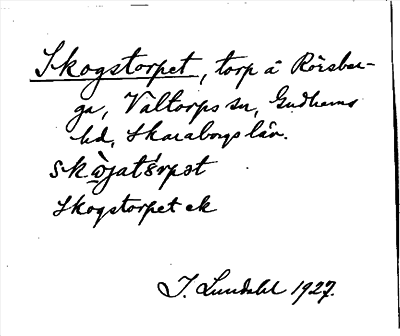 Skogstorpet, torp å Rörsber-
ga, Valtorps sn, Gudhems
hd, Skaraborgs län.
skògatórpət
Skogstorpet ek
I. Lundahl 1927.